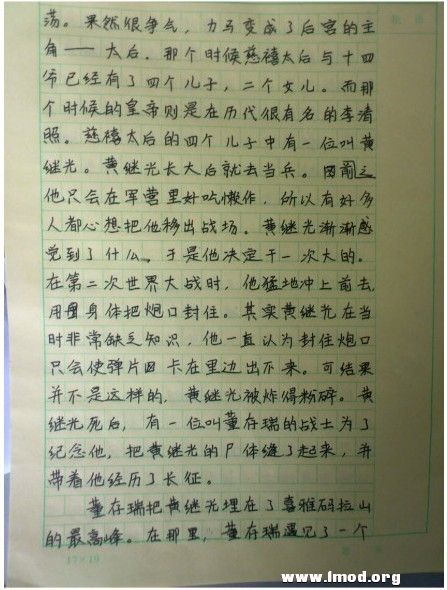 荡。果然很争气，力马变成了后宫的主
角——太后。那个时候慈禧太后与十四
爷已经有了四个儿子，二个女儿。而那
个时候的皇帝则是在历代很有名的李清
照。慈禧太后的四个儿子中有一位叫黄
继光。黄继光长大后就去当兵。因前这
他只会在军营里好吃懒作，所以有好多
人都心想把他移出战场。黄继光渐渐感
觉到了什么。于是他决定干一次大的。
在第二次世界大战时，他猛地冲上前去
用身体把炮口封住。其实黄继光在当
时非常缺乏知识，他一直认为封住炮口
只会使弹片卡在里边出不来。可结果
并不是这样的，黄继光被炸得粉碎。黄
继光死后，有一位叫董存瑞的战士为了
纪念他，把黄继光的尸体缝了起来，并
带着他经历了长征。
董存瑞把黄继光埋在了喜雅码拉山
的最高峰。在那里，董存瑞遇见了一个
17×19
www.lmod.org